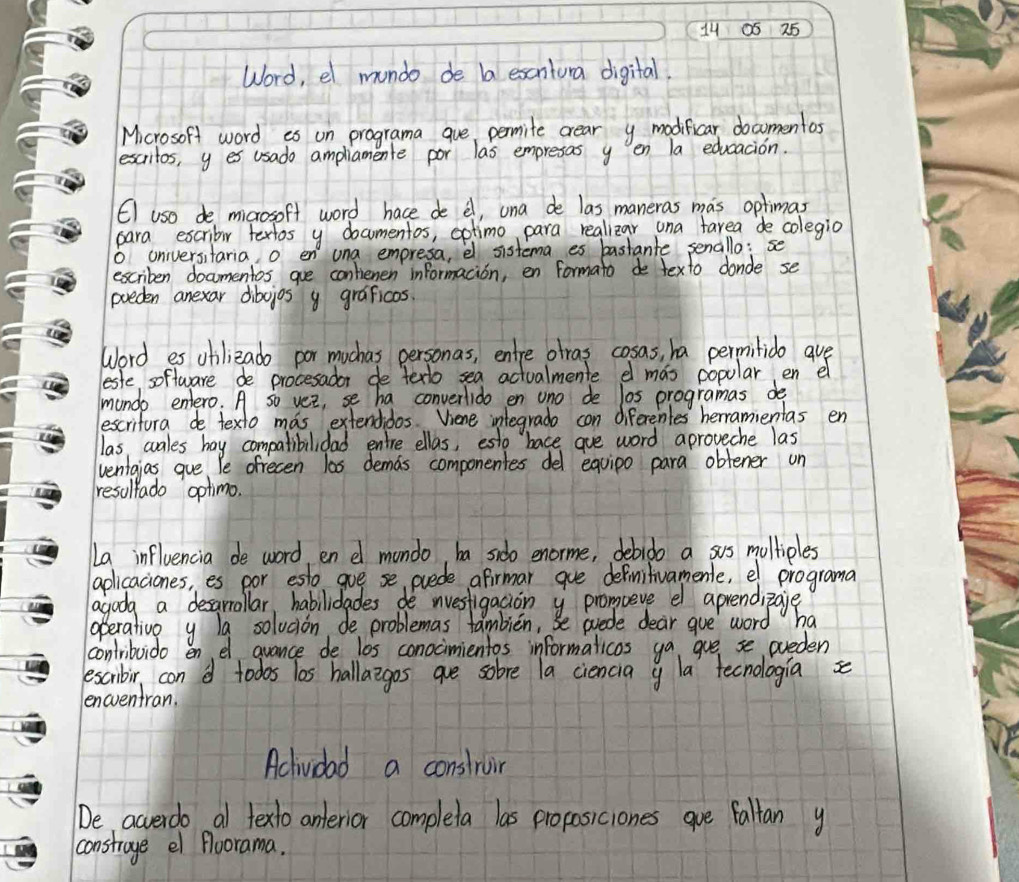 14 05 25
Word, el mundo de la escritura digital.
Microsoft word es un programa que permite crear y modificar documentos
escritos, y es usado ampliamente por las empresas y en la educación.
El uso de microsoft word hace de él, una de las maneras más optimas
para escribir textos y documentos, optimo para realizar una tarea de colegio
o universitaria, o en una empresa, el sistema es bastante sencillo: se
escriben documentos que contienen información, en formato de texto donde se
pueden anexar dibujos y gráficos.
Word es utilizado por muchas personas, entre otras cosas, ha permitido que
este software de procesador de texto sea actualmente el más popular en el
mundo entero. A su vez, se ha convertido en uno de los programas de
escritura de texto más extendidos. Viene integrado con diferentes herramientas en
las cuales hay compatibilidad entre ellas, esto hace que word aproveche las
ventajas que le ofrecen los demás componentes del equipo para obtener un
resultado optimo.
La influencia de word en el mundo ha sido enorme, debido a sus multiples
aplicaciones, es por esto que se puede afirmar que definitivamente, el programa
ayuda a desarrollar habilidades de investigación y promueve el aprendizaje
operativo y la solución de problemas también, se puede decir que word ha
contribuido en el avance de los conocimientos informaticos ya que se pueden
escribir con él todos los hallazgos que sobre la ciencia y la tecnología se
encuentran.
Actividad a construir
De acuerdo al texto anterior completa las proposiciones que faltan y
construye el fluorama.